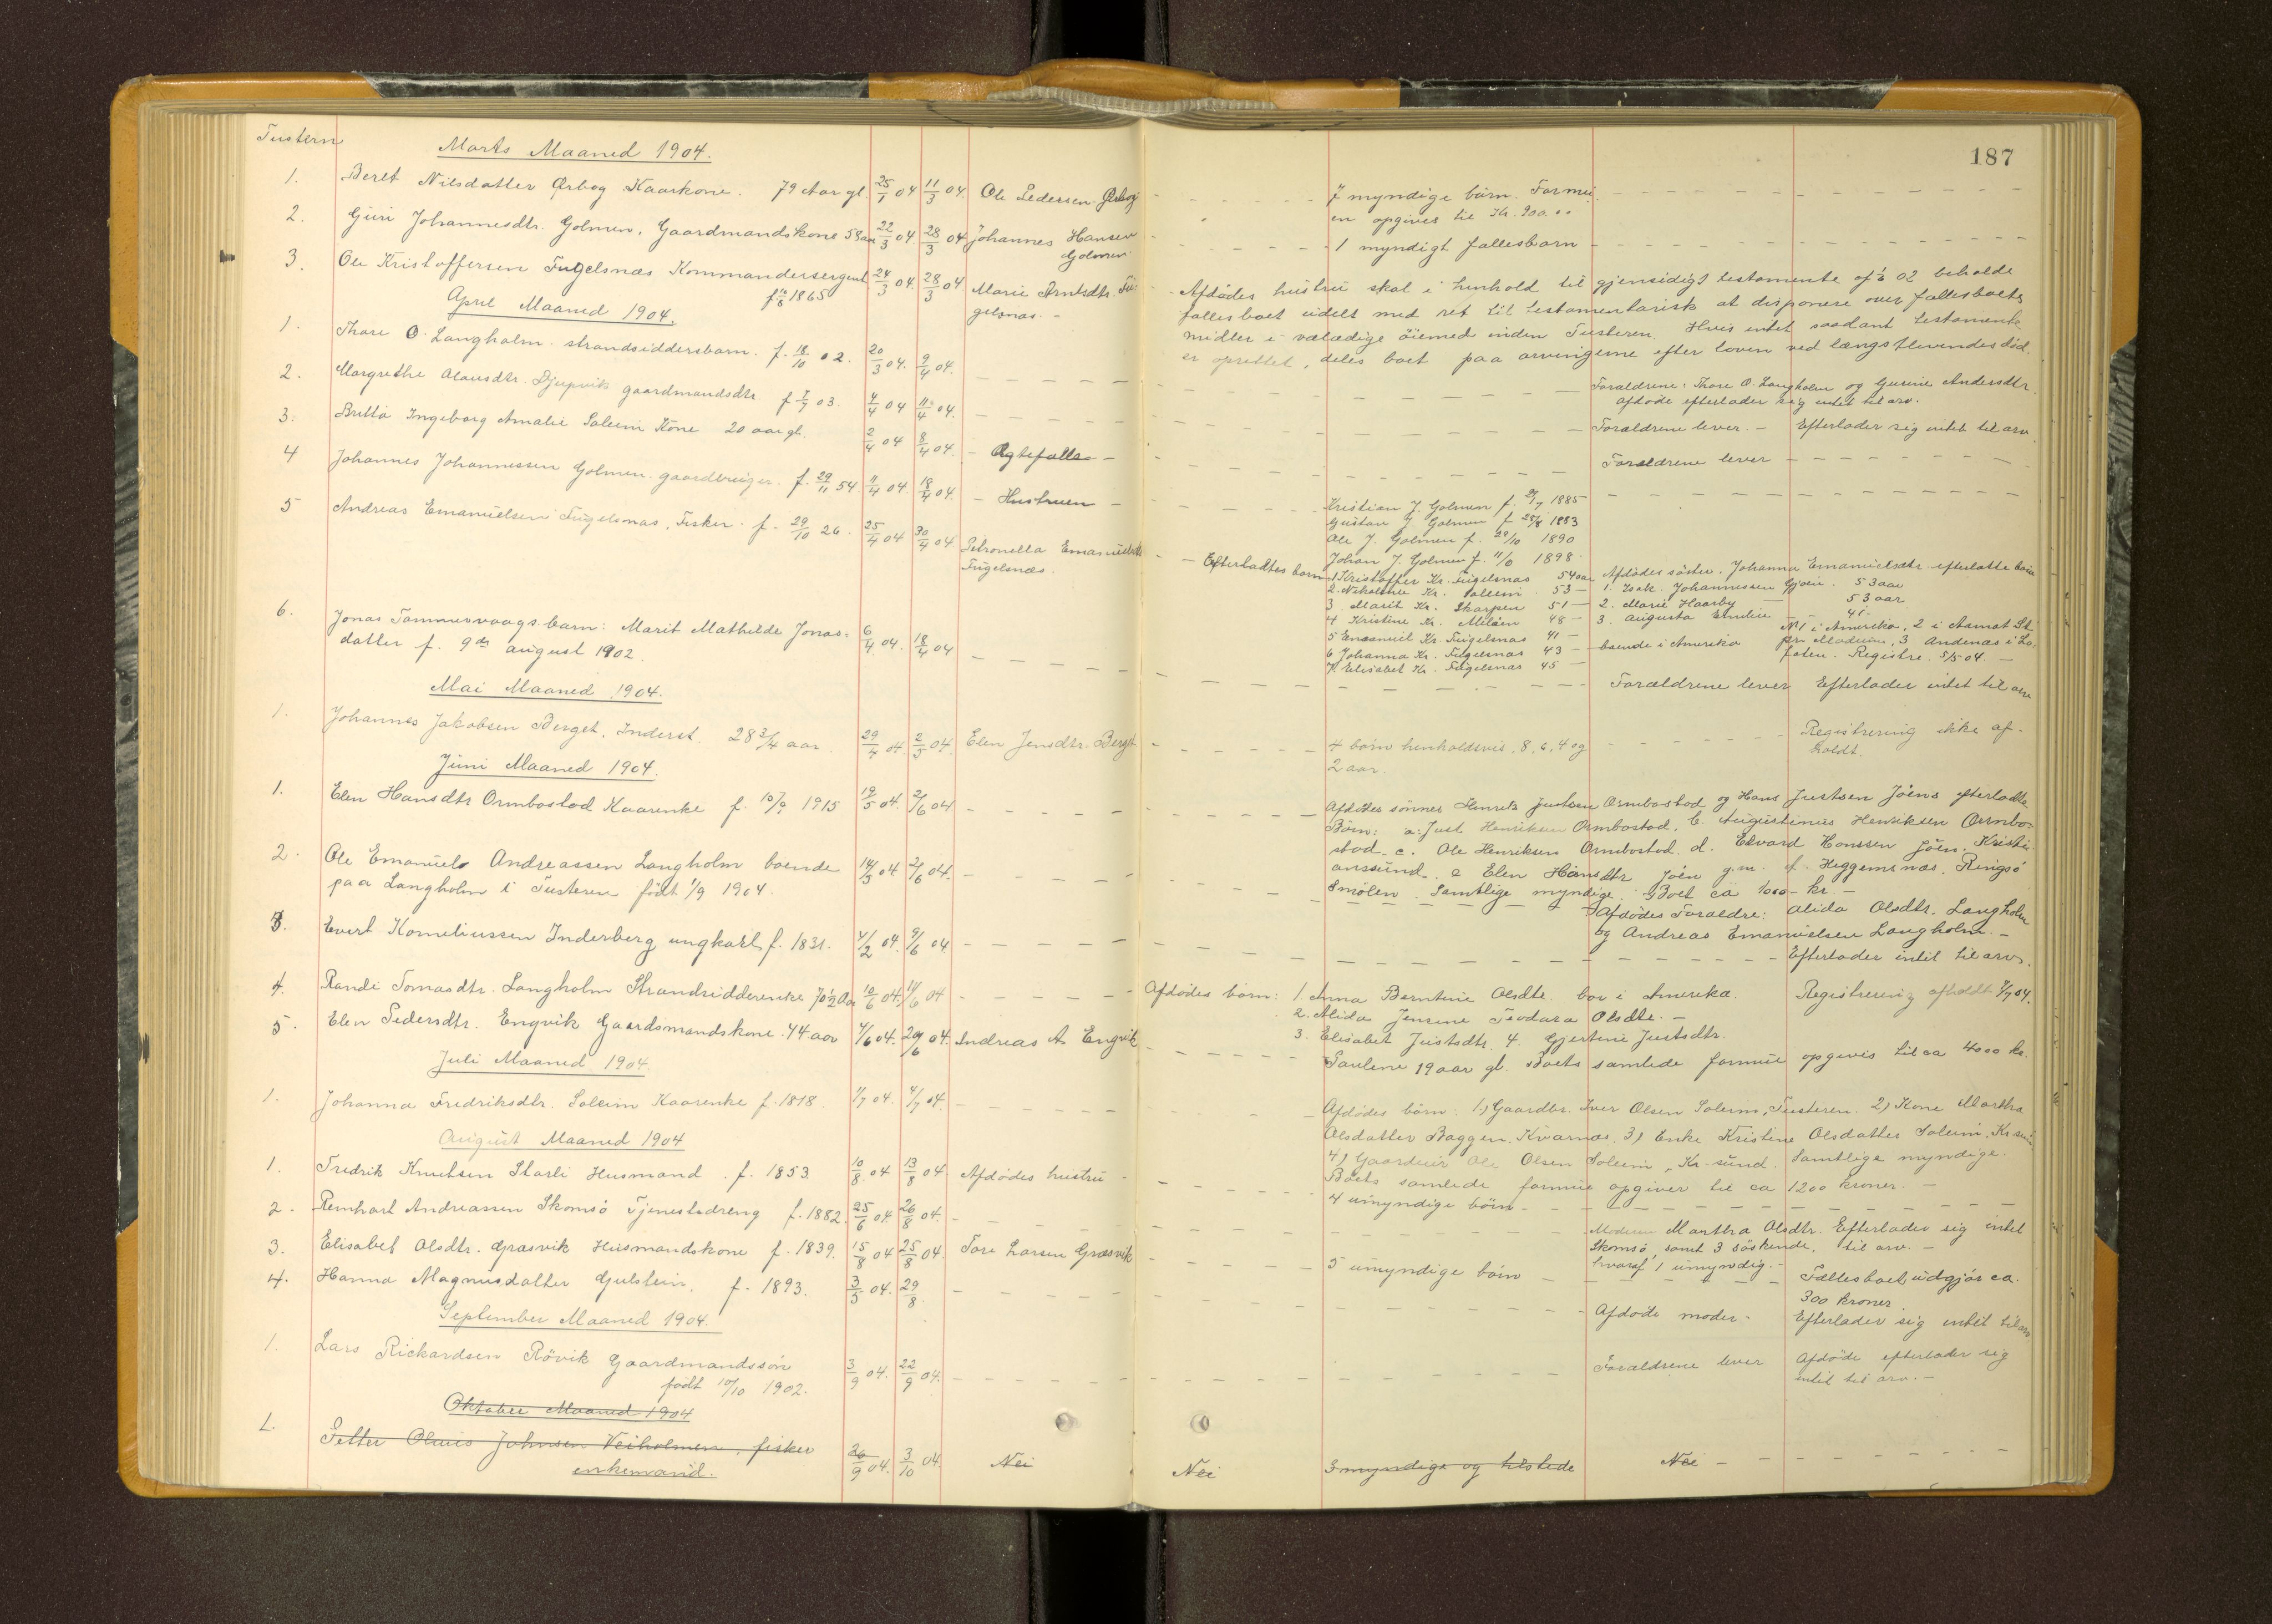 187
Tustern
Marts Maaned 1904.
1. Beret Nilsdatter Ørbog Kaarkone. 79 Aar gl. 25/1 04 11/3 04. Ole Pedersen Ørbog 7 myndige börn. Formu
en opgives til Kr. 900.00
2. Guri Johannesdtr. Golmen, Gaardmandskone 58 aar 22/3 04. 28/3 04 Johannes Hansen
Golmen 1 myndigt fallesbarn
3. Ole Kristoffersen Fugelsnæs Kommandersergent 24/3 04. 28/3 04 Marie Arntsdtr. Fu-
f 1865 gelsnæs. -
Afdödes hustru skal i henhold til gjensidigt testamente af 02 beholde
fallesboet udelt med ret til testamentarisk at disponere over fallesboets
midler i vælædige öiemed inden Tusteren. Hvis intet saadant testamente
er oprettet, deles boet paa arvingerne efter loven ved længstlevendes död.
April Maaned 1904.
1. Thore O. Langholm strandsiddersbarn. f. 18/10 02. 20/3 04. 9/4 04.
Foraldrene: Thore O. Langholm og Gurine Andersdtr.
afdöde efterlader sig intet til arv.
2. Margrethe Olausdtr. Djupvik gaardmandsdtr f 7/9 03. 4/4 04 11/4 04.
Foraldrene lever. - Efterlader sig intet til arv
3. Britta Ingeborg Amalie Soleim Kone 20 aar gl. 2/4 04 8/4 04. - Ægtefalle - Foraldrene lever
4 Johannes Johannessen Golmen. gaardbruger. f. 29/11 54. 11/4 04. 18/4 04. - Hustruen -
Kristian J. Golmen f. 1885
Gustav J. Golmen f 1883
Ole J. Golmen f. 29/10 1890
Johan J. Golmen f. 1898
5 Andreas Emanuelsen Fugelsnæs, Fisker. f. 29/10 26. 25/4 04 30/4 04 Petronella Emanuelsdtr
Fugelsnæs.
- Efterladtes barn 1 Kristoffer Kr. Fugelsnæs 54 aar Afdödes söster. Johanna Emanuelsdtr efterlatte barn
2. Nikoline Kr. Soleim 53 - 1. Isak Johannessen Gjöen. 53 aar
3. Marit Kr. Skarpen 51 - 2. Marie Haarby 53 aar
4 Kristine Kr. Milöen 48 - 3. Augusta Emilie 41 -
5 Emanuel Kr. Fugelsnæs 41 - No 1 i Amerika, 2 i Aamot St
6 Johanna Kr. Fugelsnæs 43 - boende i Amerika pr Modum, 3 Andenæs i Lo-
7. Elisabet Kr. Fugelsnæs 45 - foten. Registre. 5/5 04. -
6. Jonas Tommesvaags barn: Marit Mathilde Jonas-
datter f. 9de august 1902. 6/4 04. 18/4 04
Foraldrene lever Efterlader intet til arv
Mai Maaned 1904.
1. Johannes Jakobsen Berget. Inderst. 28 3/4 aar. 29/4 04 2/5 04 Elen Jensdtr. Berget
4 börn henholdsvis, 8, 6, 4 og
2 aar.
Registrering ikke af-
holdt.
Juni Maaned 1904.
1. Elen Hansdtr Ormbostad Kaarenke f. 10/9 1915 19/5 04. 2/6 04
Afdödes sönner Henrik Justsen Ormbostad og Hans Justsen Jöens efterladte
Börn: a: Just Henriksen Ormbostad, b. Augustinus Henriksen Ormbo-
stad c. Ole Henriksen Ormbostad d. Edvard Hanssen Jöen. Kristi-
anssund. e Elen Hansdtr Jöen g.m. Heggemsnæs, Ringsö
Smölen. Samtlige myndige. Boet ca 1000 - kr. -
2. Ole Emanuels Andreassen Langholm boende 14/5 04 2/6 04.
paa Langholm i Tusteren födt 1/9 1904.
Afdödes Foraldre: Alida Olsdtr. Langholm
og Andreas Emanuelsen Langholm. -
3. Evert Korneliussen Inderberg ungkarl f. 1831. 4/2 04. 9/6 04
Efterlader intet til arv.
4. Randi Tomasdtr. Langholm Strandsidderenke 70 1/2 Aar 10/6 04. 14/6 04
Afdödes börn: 1. Anna Berntine Olsdtr. bor i Amerika. Registrering afholdt 04.
2. Alida Jensine Teodara Olsdtr. -
3. Elisabet Justsdtr. 4. Gjertine Justsdtr.
5. Elen Pedersdtr. Engvik Gaardsmandskone. 44 aar 4/6 04. 29/6 04. Andreas A Engvik
Paulene 19 aar gl. Boets samlede formue opgives til ca 4000 kr.
Juli Maaned 1904.
1. Johanna Fredriksdtr. Soleim Kaarenke f. 1818. 1/7 04. 4/7 04.
Afdödes börn. 1.) Gaardbr. Iver Olsen Soleim, Tusteren. 2) Kone Martha
Olsdatter Baggen. Kvarnæs. 3) Enke Kristine Olsdatter Soleim. Kr sund
4) Gaardeier Ole Olsen Soleim, Kr. sund. Samtlige myndige.
Boets samlede formue opgiver til ca 1200 kroner. -
August Maaned 1904
1. Fredrik Knutsen Starli Husmand. f. 1853. 10/8 04 13/8 04 Afdödes hustru - 4 umyndige börn
2. Reinhart Andreassen Skomsö Tjenestedreng f. 1882. 25/6 04. 26/8 04.
Moderen Martha Olsdtr. Efterlader sig intet
Skomsö, samt 3 söskende, til arv. -
hvoraf 1 umyndig. -
3. Elisabet Olsdtr. Græsvik Husmandskone f. 1839. 15/8 04 25/8 04. Tore Larsen Græsvik 5 umyndige börn
Fællesboet udgjör ca.
300 kroner.
4. Hanna Magnusdatter Gulstein. f. 1893. 3/5 04. 29/8.
Afdöde moder. Efterlader sig intet til arv
September Maaned 1904.
1. Lars Rickardsen Rövik Gaardmandssön 3/9 04. 22/9 04.
födt 10/10 1902.
Foraldrene lever Afdöde efterlader sig
intet til arv. -
Oktober Maaned 1904
1. Petter Olaus Johnsen Veiholmen, fisker
enkemand. 26/9 04. 3/10 04. Nei Nei 3 myndige og tilstede Nei -